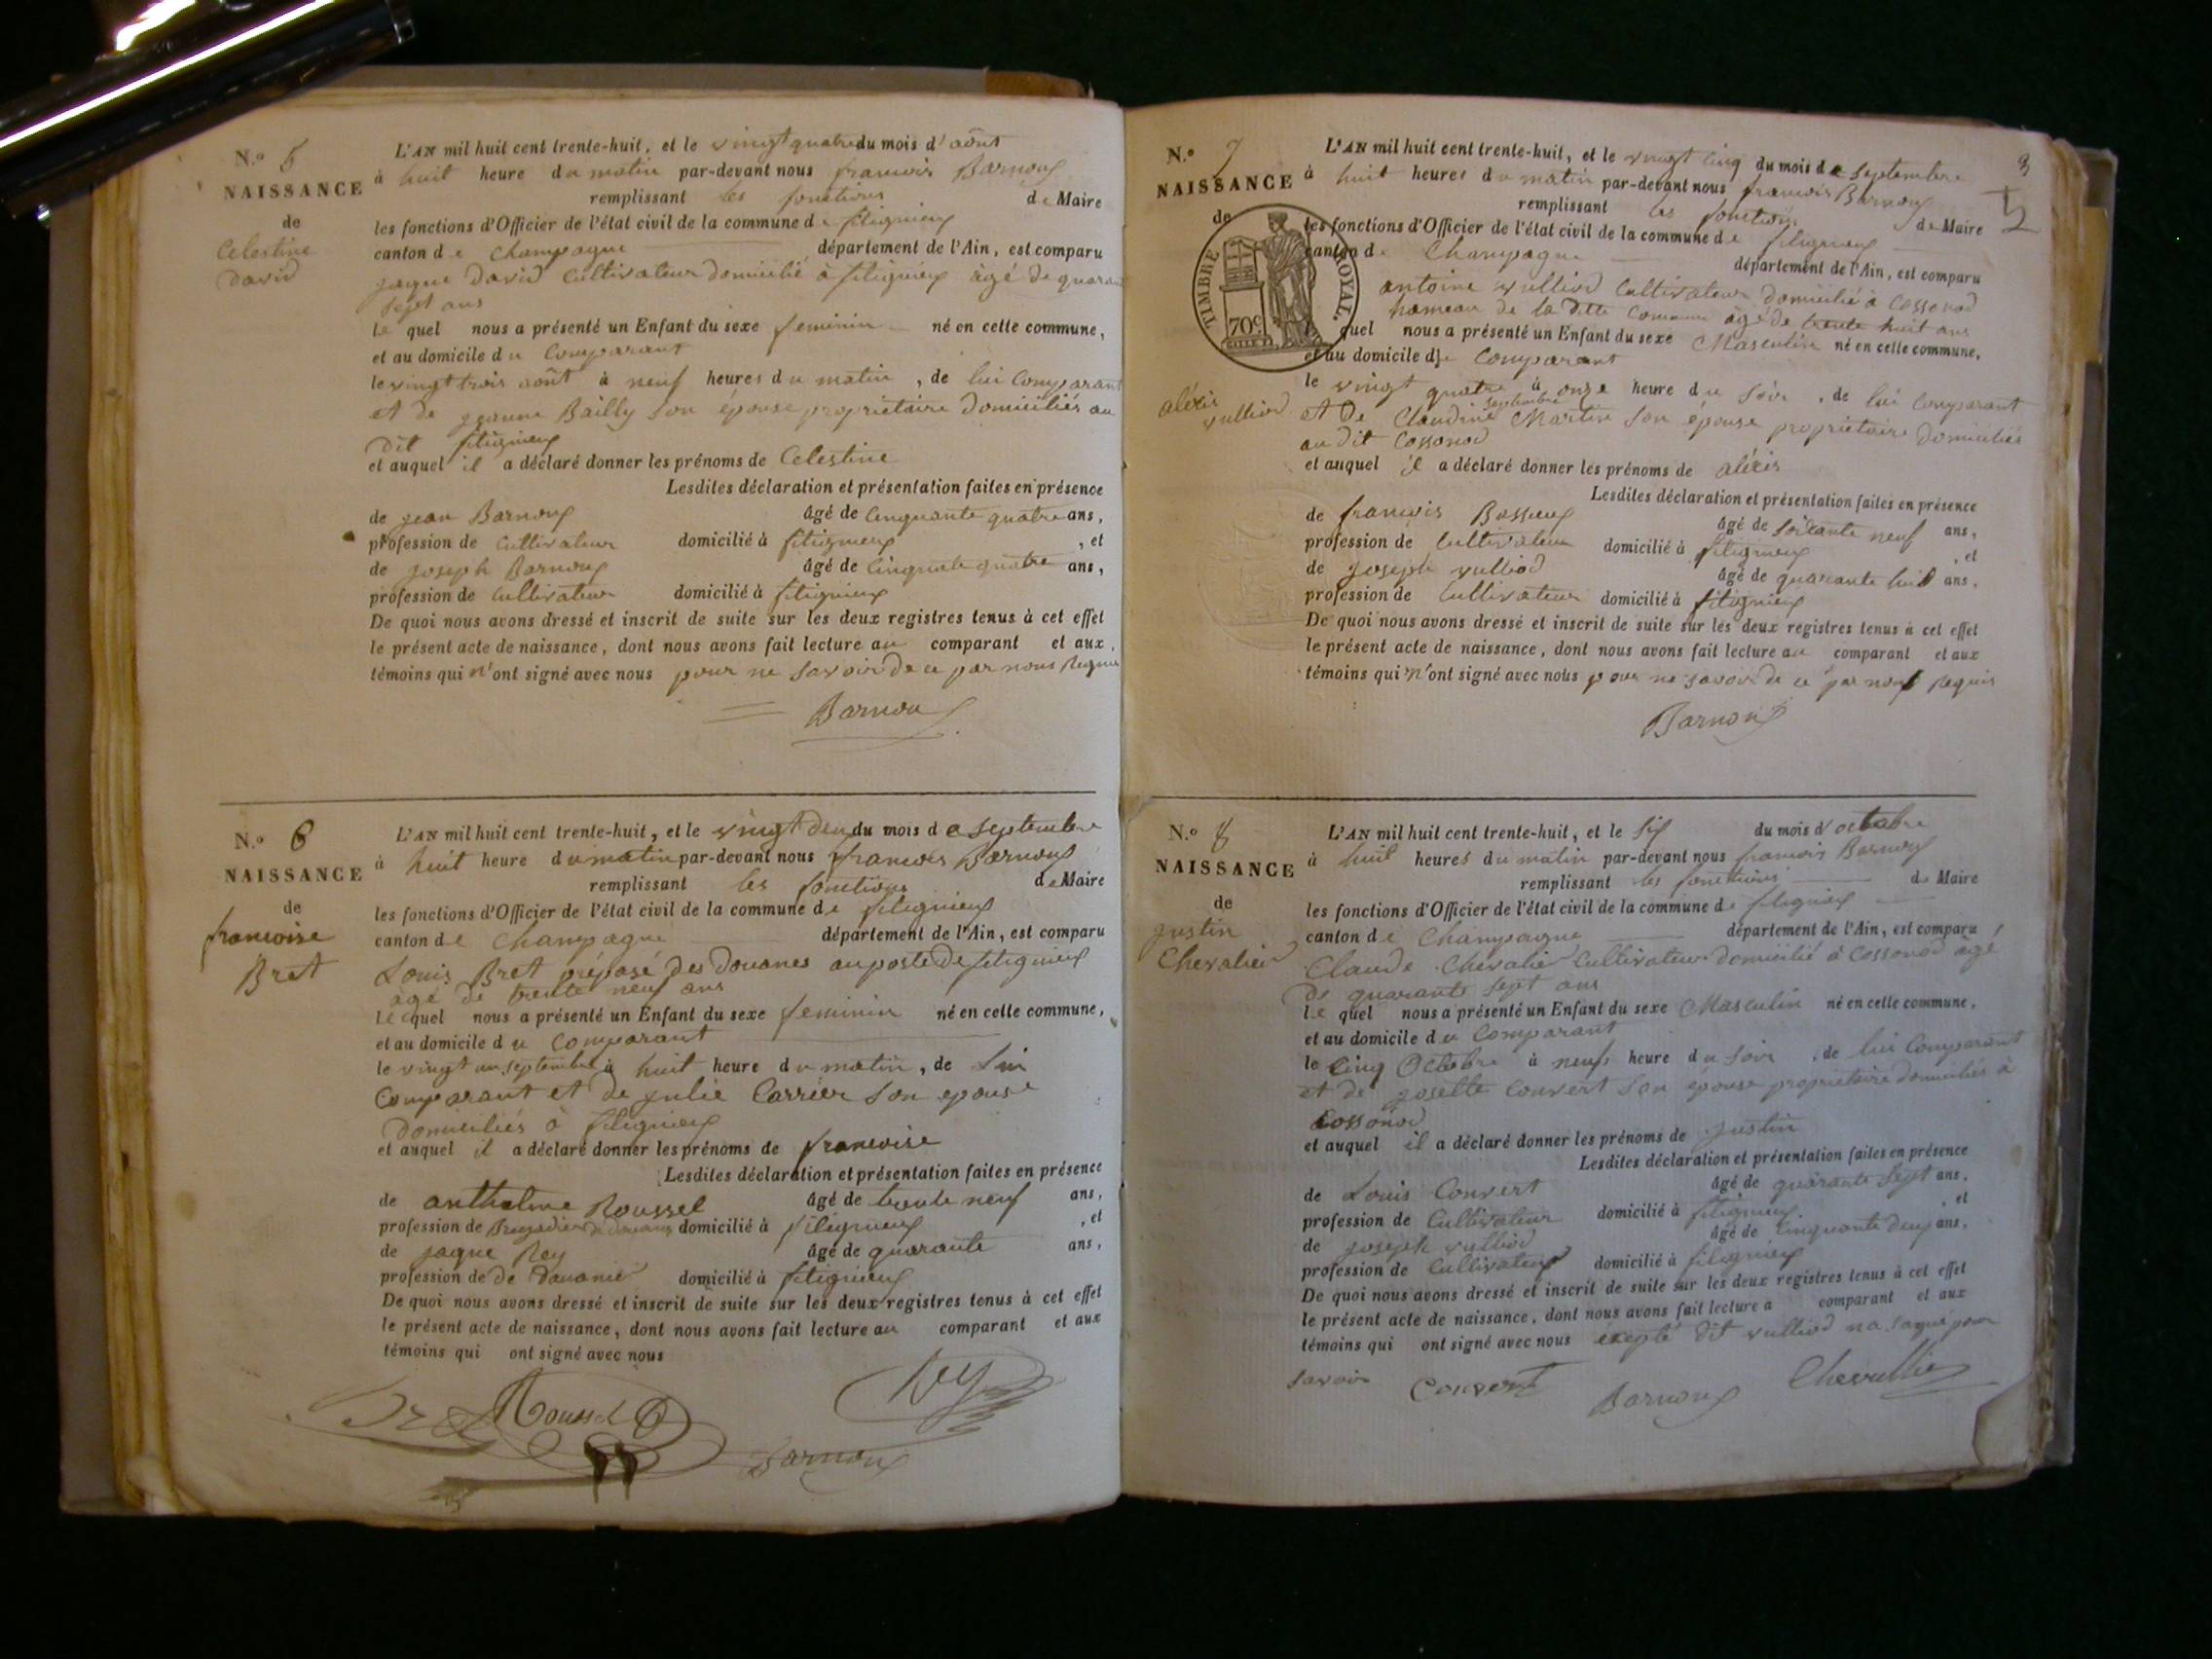 N.º 5
NAISSANCE
de
Celestine
David
L'AN mil huit cent trente-huit, et le vingt quatre du mois d'août
à huit heure du matin par-devant nous francois Barnoux
remplissant les fonctions de Maire
les fonctions d'Officier de l'état civil de la commune de fitignieux
canton de Champagne département de l'Ain, est comparu
jaque David Cultivateur domicilié à fitignieux âgé de quarante
sept ans
le quel nous a présenté un Enfant du sexe feminin né en cette commune,
et au domicile du Comparant
le vingt trois août à neuf heures du matin, de lui Comparant
et de jeanne Bailly son épouse proprietaire domiciliés au
dit fitignieux
et auquel il a déclaré donner les prénoms de Celestine
Lesdites déclaration et présentation faites en présence
de jean Barnoux âgé de Cinquante quatre ans,
profession de Cultivateur domicilié à fitignieux, et
de joseph Barnoux âgé de Cinquate quatre ans,
profession de Cultivateur domicilié à fitignieux
De quoi nous avons dressé et inscrit de suite sur les deux registres tenus à cet effet
le présent acte de naissance, dont nous avons fait lecture au comparant et aux
témoins qui n'ont signé avec nous pour ne savoir de ce par nous Requis
Barnoux
N.º 6
NAISSANCE
de
francoise
Bret
L'AN mil huit cent trente-huit, et le vingt deux du mois de septembre
à huit heure du matin par-devant nous francois Barnoux
remplissant les fonctions de Maire
les fonctions d'Officier de l'état civil de la commune de fitignieux
canton de Champagne département de l'Ain, est comparu
Louis Bret préposé des douanes au poste de fitignieux
âgé de trente neuf ans
Le quel nous a présenté un Enfant du sexe feminin né en cette commune,
et au domicile du Comparant
le vingt un septembre à huit heure du matin, de Lui
Comparant et de julie Carrier son epouse
Domiciliés à fitignieux
et auquel il a déclaré donner les prénoms de francoise
Lesdites déclaration et présentation faites en présence
de anthelme Roussel âgé de trente neuf ans,
profession de Bregadier de douanes domicilié à fitignieux, et
de jaque Rey âgé de quarante ans,
profession de de Douanier domicilié à fitignieux
De quoi nous avons dressé et inscrit de suite sur les deux registres tenus à cet effet
le présent acte de naissance, dont nous avons fait lecture au comparant et aux
témoins qui ont signé avec nous
Bret Roussel Rey
Barnoux
3
N.º 7
NAISSANCE
de
TIMBRE ROYAL.
70c
aléxis
vulliod
L'AN mil huit cent trente-huit, et le vingt cinq du mois de septembre
à huit heures du matin par-devant nous francois Barnoux
remplissant les fonctions de Maire
les fonctions d'Officier de l'état civil de la commune de fitignieux
canton de Champagne département de l'Ain, est comparu
antoine vulliod Cultivateur domicilié à Cossonod
hameau de la ditte Comune âgé de trente huit ans
quel nous a présenté un Enfant du sexe Masculin né en cette commune,
et au domicile de Comparant
le vingt quatre septembre à onze heure du soir, de lui Comparant
et de Claudine Martin son épouse proprietaire Domiciliés
au dit Cossonod
et auquel il a déclaré donner les prénoms de aléxis
Lesdites déclaration et présentation faites en présence
de francois Bossieux âgé de soixante neuf ans,
profession de Cultivateur domicilié à fitignieux, et
de joseph vulliod âgé de quarante huit ans,
profession de Cultivateur domicilié à fitignieux
De quoi nous avons dressé et inscrit de suite sur les deux registres tenus à cet effet
le présent acte de naissance, dont nous avons fait lecture au comparant et aux
témoins qui n'ont signé avec nous pour ne savoir de ce par nous Requis
Barnoux
N.º 8
NAISSANCE
de
justin
Chevalier
L'AN mil huit cent trente-huit, et le six du mois d'octobre
à huit heures du matin par-devant nous francois Barnoux
remplissant les fonctions de Maire
les fonctions d'Officier de l'état civil de la commune de fitignieux
canton de Champagne département de l'Ain, est comparu
Claude Chevalier Cultivateur domicilié à Cossonod âgé
de quarante sept ans
le quel nous a présenté un Enfant du sexe Masculin né en cette commune,
et au domicile du Comparant
le Cinq Octobre à neufs heure du soir, de lui Comparant
et de josette Convert son épouse proprietaire domiciliés à
Cossonod
et auquel il a déclaré donner les prénoms de justin
Lesdites déclaration et présentation faites en présence
de Louis Convert âgé de quarante sept ans,
profession de Cultivateur domicilié à fitignieux, et
de joseph vulliod âgé de Cinquante deux ans,
profession de Cultivateur domicilié à fitignieux
De quoi nous avons dressé et inscrit de suite sur les deux registres tenus à cet effet
le présent acte de naissance, dont nous avons fait lecture a comparant et aux
témoins qui ont signé avec nous exepté dit vulliod na pour
savoir Convert Barnoux Chevallier